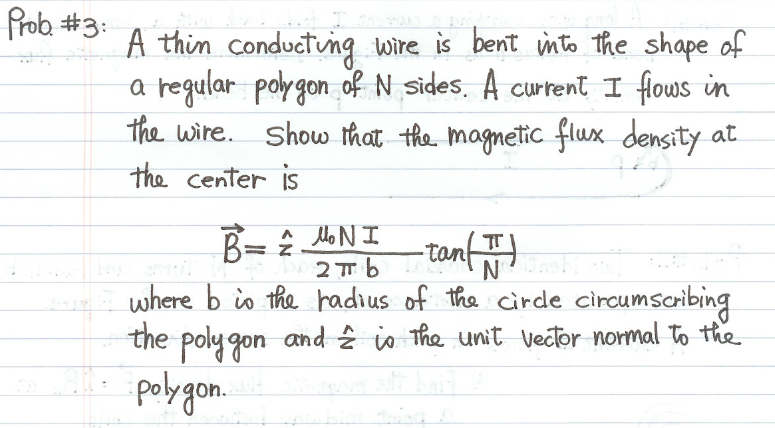 Prob. #3:
A thin conducting wire is bent into the shape of
a regular polygon of N sides. A current I flows in
the wire. Show that the magnetic flux density at
the center is
B⃗ = ẑ μ₀NI / 2πb tan(π/N)
where b is the radius of the circle circumscribing
the polygon and ẑ is the unit vector normal to the
polygon.